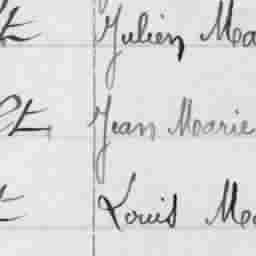 Julien Ma
Jean Marie
Louis Ma